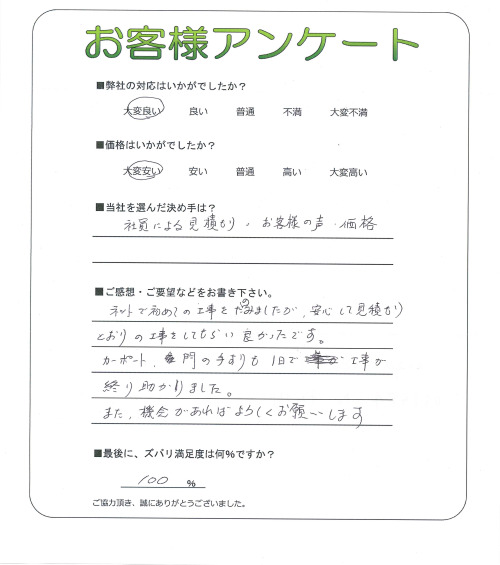 お客様アンケート
■弊社の対応はいかがでしたか？
大変良い 良い 普通 不満 大変不満
■価格はいかがでしたか？
大変安い 安い 普通 高い 大変高い
■当社を選んだ決め手は？
社員による見積もり・お客様の声・価格
■ご感想・ご要望などをお書き下さい。
ネットで初めての工事をたのみましたが、安心して見積もり
とおりの工事をしてもらい良かったです。
カーポート、門の手すりも1日で工事が
終り助かりました。
また、機会があればよろしくお願いします
■最後に、ズバリ満足度は何%ですか？
100 %
ご協力頂き、誠にありがとうございました。